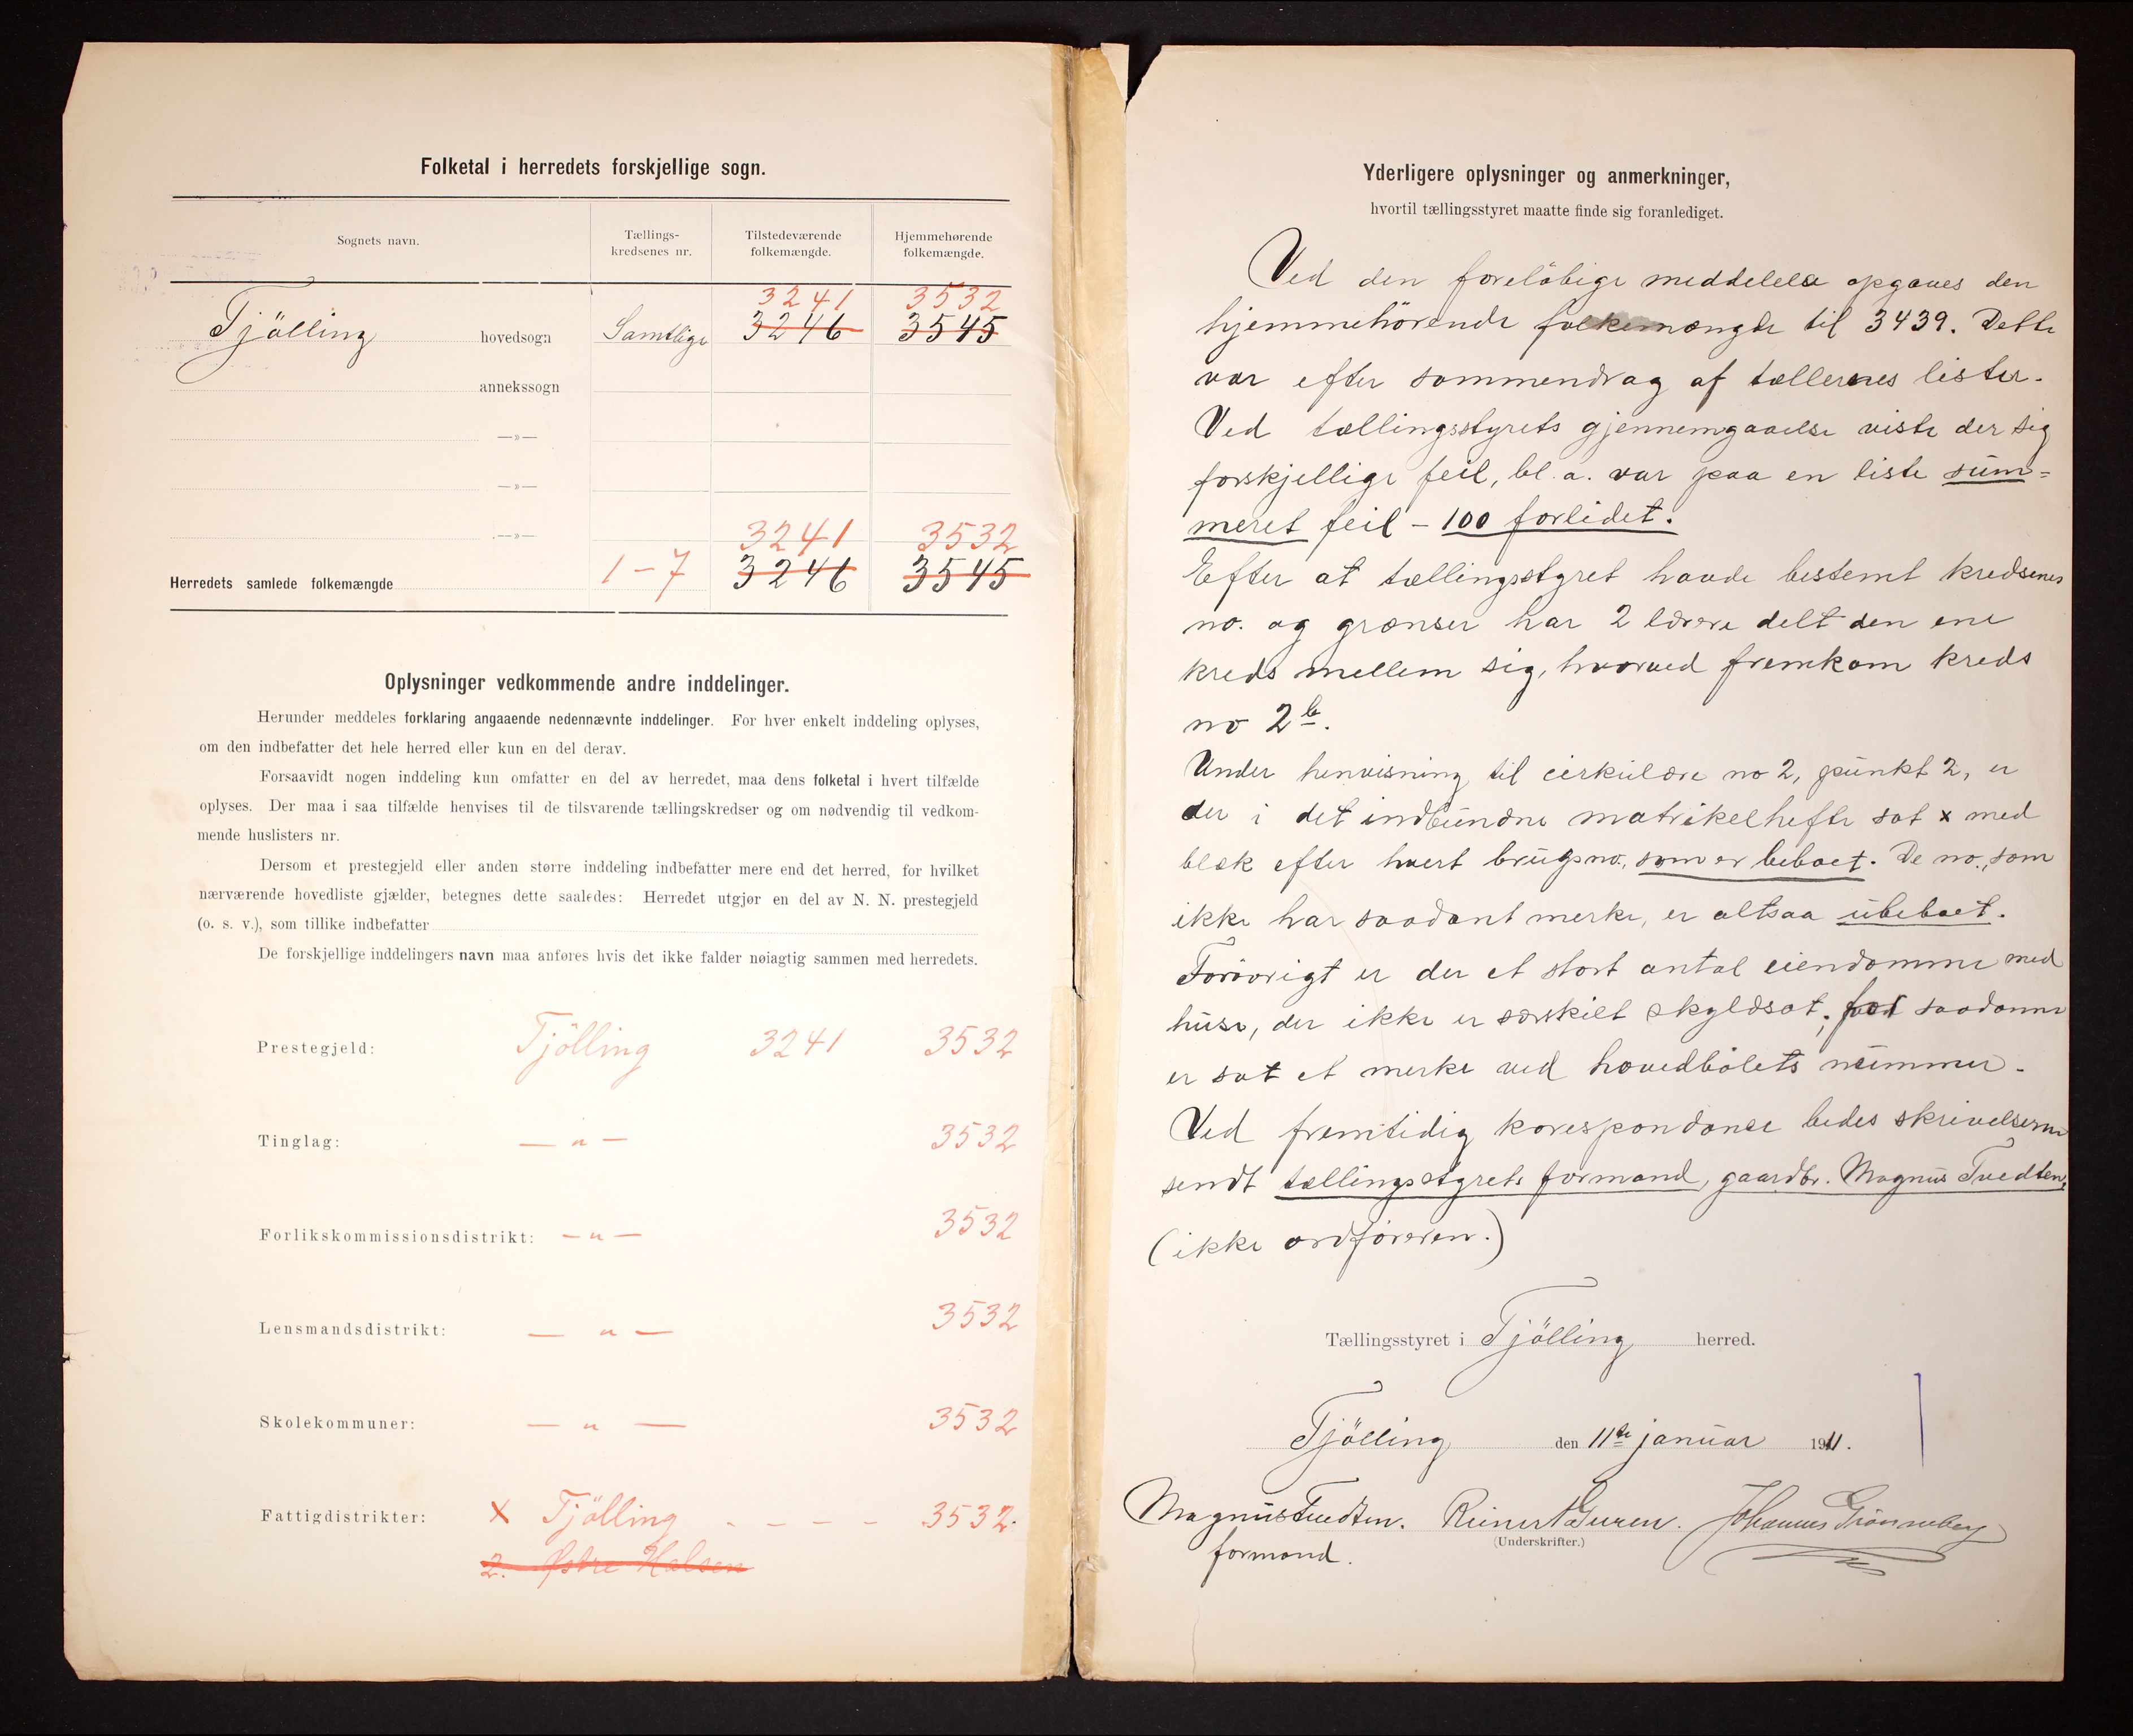 Folketal i herredets forskjellige sogn.
Sognets navn.
Tællings-
kredsenes nr.
Tilstedeværende
folkemængde.
Hjemmehørende
folkemængde.
3241 3532
Tjölling hovedsogn Samtlige 3246 3545
annekssogn
—»—
—»—
3241 3532
—»—
Herredets samlede folkemængde 1-7 3246 3545
Oplysninger vedkommende andre inddelinger.
Herunder meddeles forklaring angaaende nedennævnte inddelinger. For hver enkelt inddeling oplyses,
om den indbefatter det hele herred eller kun en del derav.
Forsaavidt nogen inddeling kun omfatter en del av herredet, maa dens folketal i hvert tilfælde
oplyses. Der maa i saa tilfælde henvises til de tilsvarende tællingskredser og om nødvendig til vedkom-
mende huslisters nr.
Dersom et prestegjeld eller anden større inddeling indbefatter mere end det herred, for hvilket
nærværende hovedliste gjælder, betegnes dette saaledes: Herredet utgjør en del av N. N. prestegjeld
(o. s. v.), som tillike indbefatter
De forskjellige inddelingers navn maa anføres hvis det ikke falder nøiagtig sammen med herredets.
Prestegjeld: Tjölling 3241 3532
Tinglag: — „ — 3532
Forlikskommissionsdistrikt: — „ — 3532
Lensmandsdistrikt: — „ — 3532
Skolekommuner: — „ — 3532
Fattigdistrikter: x Tjölling - - - - 3532.
2. Østre Halsen
Yderligere oplysninger og anmerkninger,
hvortil tællingsstyret maatte finde sig foranlediget.
Ved den forelöbige meddelelse opgaves den
hjemmehörende folkemængde til 3439. Dette
var efter sammendrag af tællernes lister.
Ved tællingsstyrets gjennemgaaelse viste der sig
forskjellige feil, bl. a. var paa en liste sum=
meret feil - 100 forlidet.
Efter at tællingsstyret havde bestemt kredsenes
no. og grænser har 2 lærere delt den ene
kreds mellem sig, hvorved fremkom kreds
no 2b.
Under henvisning til cirkulære no 2, punkt 2, er
der i det indbundne matrikelhefte sat x med
blæk efter hvert brugsno. som er beboet. De no., som
ikke har saadant merke, er altsaa ubeboet.
Forövrigt er der et stort antal eiendomme med
huse, der ikke er særskilt skyldsat; for saadanne
er sat et merke ved hovedbölets nummer.
Ved fremtidig korespondanse bedes skrivelserne
sendt tællingsstyrets formand, gaardbr. Magnus Tvedten,
(ikke ordföreren.)
Tællingsstyret i Tjölling herred.
Tjölling den 11te januar 1911.
Magnus Tvedten. Reinert Johannes Grönneberg
(Underskrifter.)
formand.